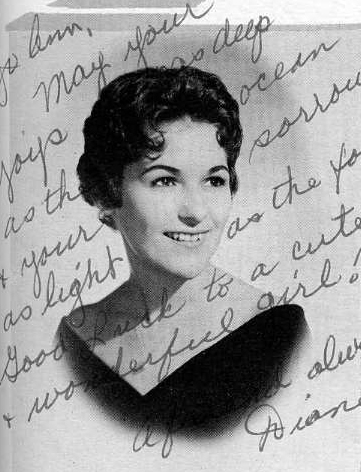 Jo Ann,
May your
joys as deep
as the ocean
& your sorrow
as light as the fo
Good Luck to a cute
& wonderful girl!
a friend alw
Diane